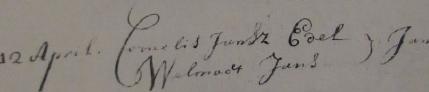 12 April. Cornelis Jansz Edel } Jan
Welmoet Jans